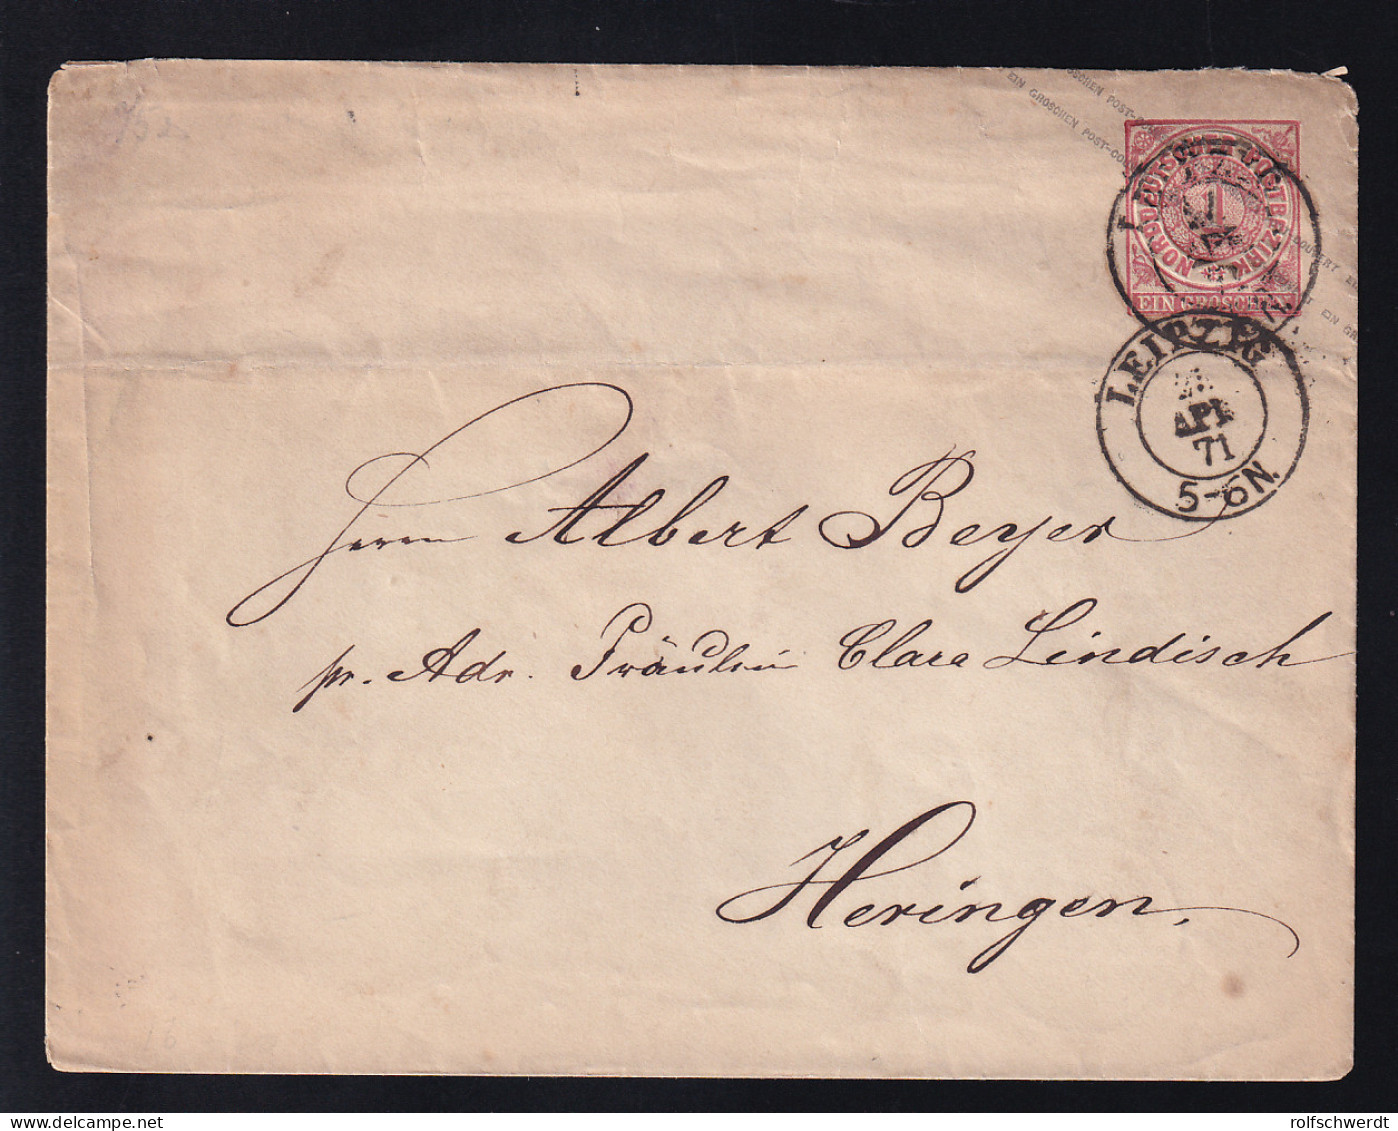 EIN GROSCHEN POST-COUVERT EIN
NORDDEUTSCHER POSTBEZIRK
1
EIN GROSCHEN
LEIPZIG
APR
71
5-6N.
Herrn Albert Beyer
pr. Adr. Fräulein Clara Lindisch
Heringen.
rolfschwerdt